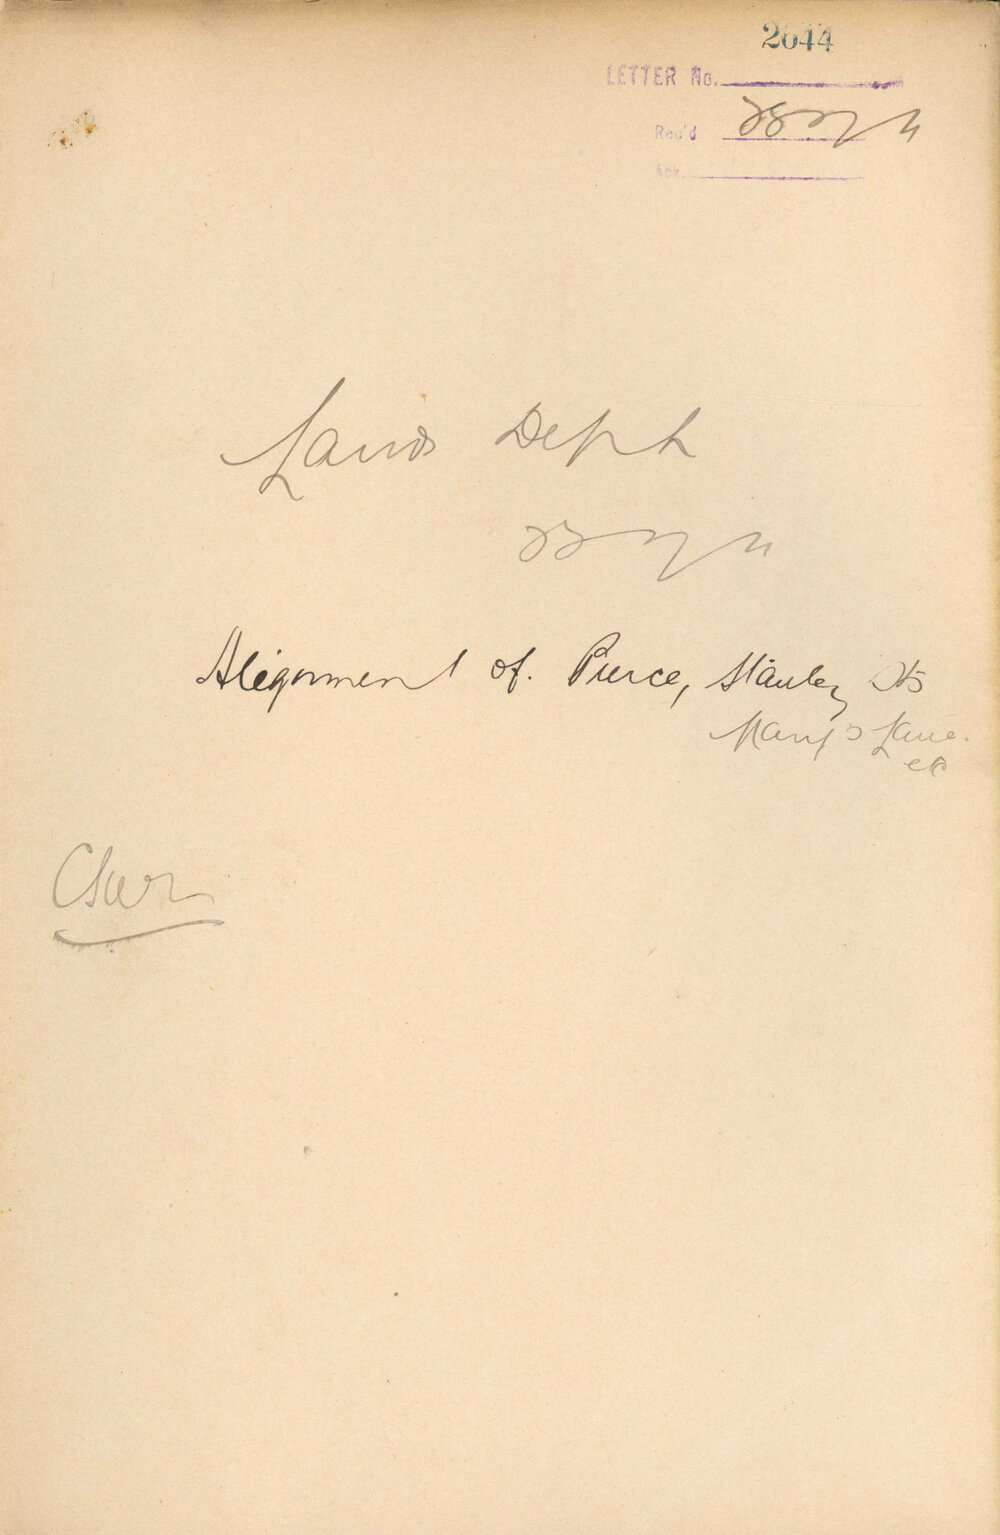 2044
LETTER No.
Rec'd
Ack.
Lands Dept
Alignment of. Pierce, Stanley Sts
Mary's Lane.
etc